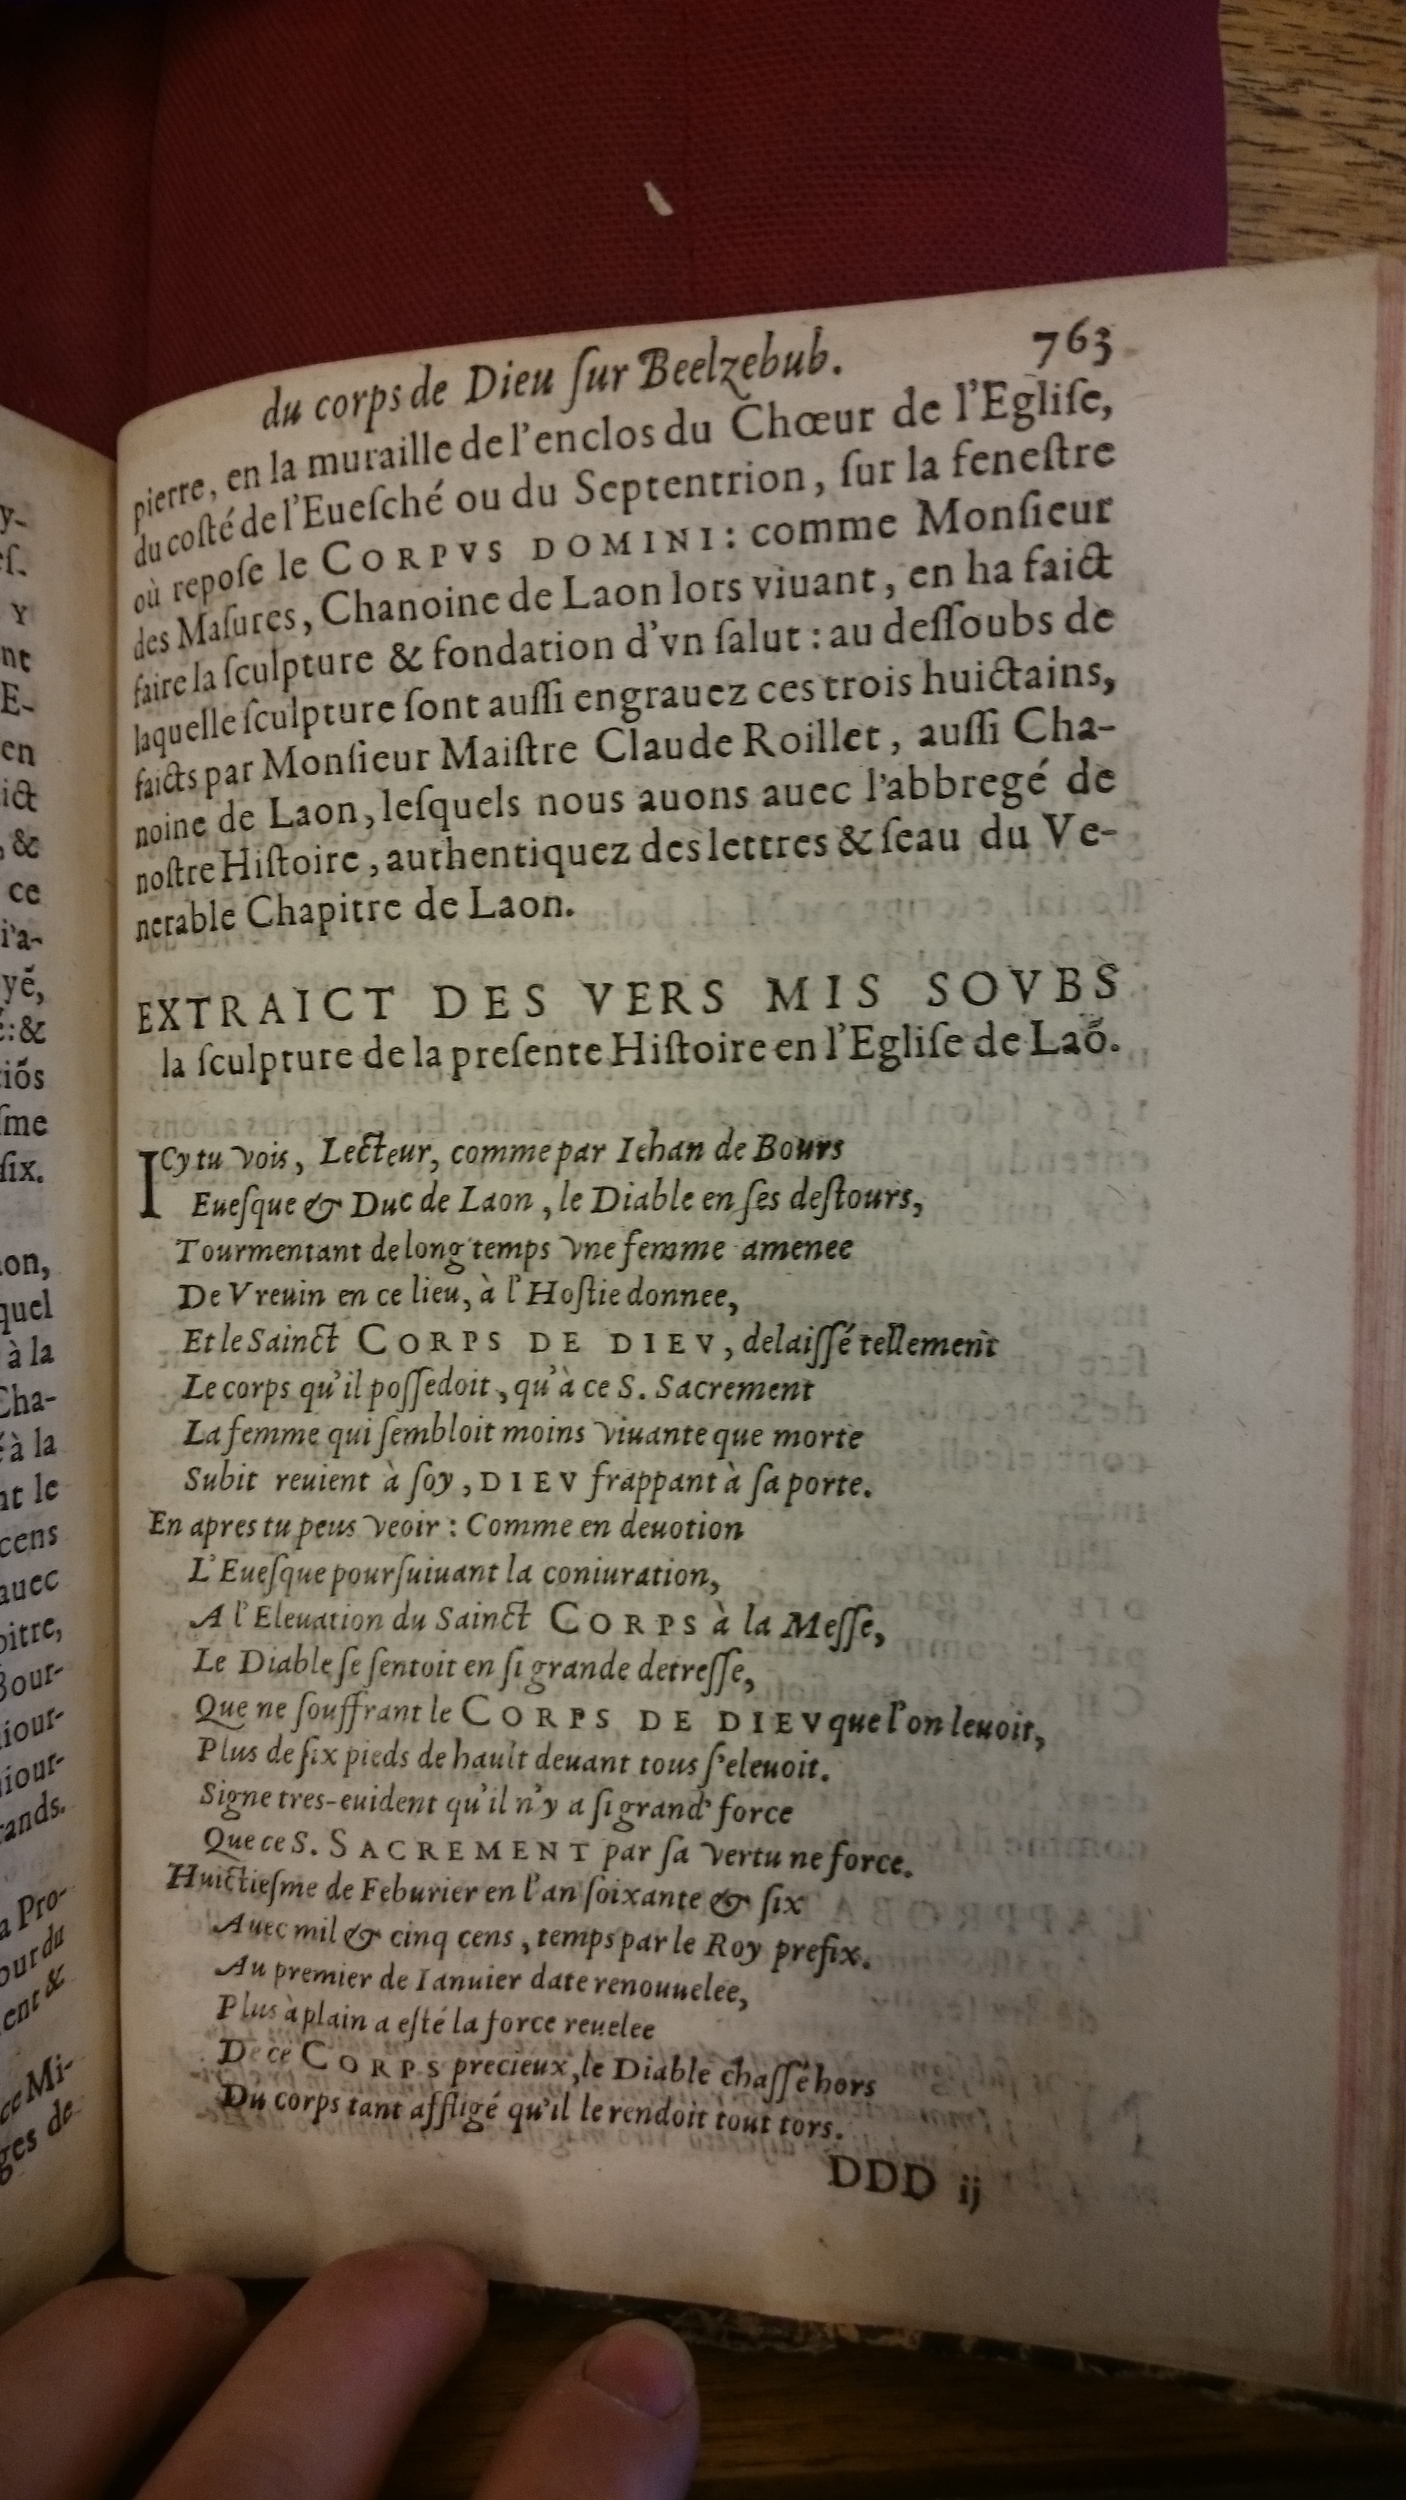 du corps de Dieu ſur Beelzebub. 763
pierre, en la muraille de l'enclos du Chœur de l'Egliſe,
du coſté de l'Eueſché ou du Septentrion, ſur la feneſtre
où repoſe le CORPVS DOMINI: comme Monſieur
des Maſures, Chanoine de Laon lors viuant, en ha faict
faire la ſculpture & fondation d'vn ſalut : au deſſoubs de
laquelle ſculpture ſont auſſi engrauez ces trois huictains,
faicts par Monſieur Maiſtre Claude Roillet, auſſi Cha-
noine de Laon, leſquels nous auons auec l'abbregé de
noſtre Hiſtoire, authentiquez des lettres & ſeau du Ve-
nerable Chapitre de Laon.
EXTRAICT DES VERS MIS SOVBS
la ſculpture de la preſente Hiſtoire en l'Egliſe de Laõ.
ICy tu vois, Lecteur, comme par Iehan de Bours
Eueſque & Duc de Laon, le Diable en ſes deſtours,
Tourmentant de long temps vne femme amenee
De Vreuin en ce lieu, à l'Hoſtie donnee,
Et le Sainct CORPS DE DIEV, delaiſſé tellement
Le corps qu'il poſſedoit, qu'à ce S. Sacrement
La femme qui ſembloit moins viuante que morte
Subit reuient à ſoy, DIEV frappant à ſa porte.
En apres tu peus veoir : Comme en deuotion
L'Eueſque pourſuiuant la coniuration,
A l'Eleuation du Sainct CORPS à la Meſſe,
Le Diable ſe ſentoit en ſi grande detreſſe,
Que ne ſouffrant le CORPS DE DIEV que l'on leuoit,
Plus de ſix pieds de hault deuant tous ſ'eleuoit.
Signe tres-euident qu'il n'y a ſi grand' force
Que ce S. SACREMENT par ſa vertu ne force.
Huictieſme de Feburier en l'an ſoixante & ſix
Auec mil & cinq cens, temps par le Roy prefix.
Au premier de Ianuier date renouuelee,
Plus à plain a eſté la force reuelee
De ce CORPS precieux, le Diable chaſſé hors
Du corps tant affligé qu'il le rendoit tout tors.
DDD ij